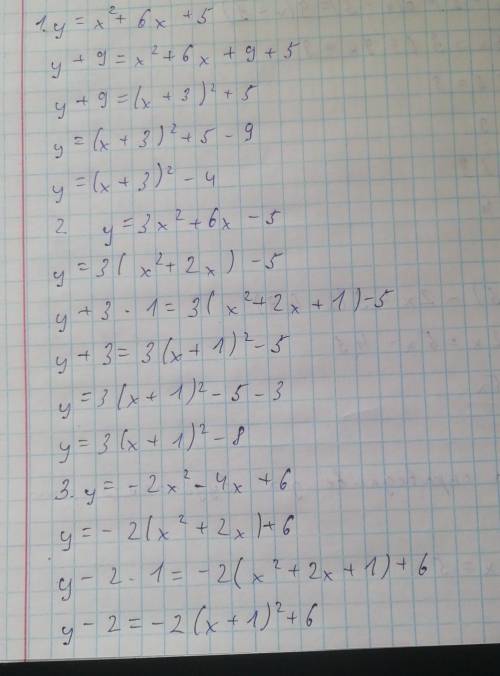 1. y = x² + 6x + 5
y + 9 = x² + 6x + 9 + 5
y + 9 = (x + 3)² + 5
y = (x + 3)² + 5 - 9
y = (x + 3)² - 4
2 y = 3x² + 6x - 5
y = 3( x² + 2x ) - 5
y + 3 · 1 = 3( x² + 2x + 1) - 5
y + 3 = 3(x + 1)² - 5
y = 3(x + 1)² - 5 - 3
y = 3(x + 1)² - 8
3. y = - 2x² - 4x + 6
y = - 2(x² + 2x) + 6
y - 2 · 1 = -2(x² + 2x + 1) + 6
y - 2 = -2(x + 1)² + 6